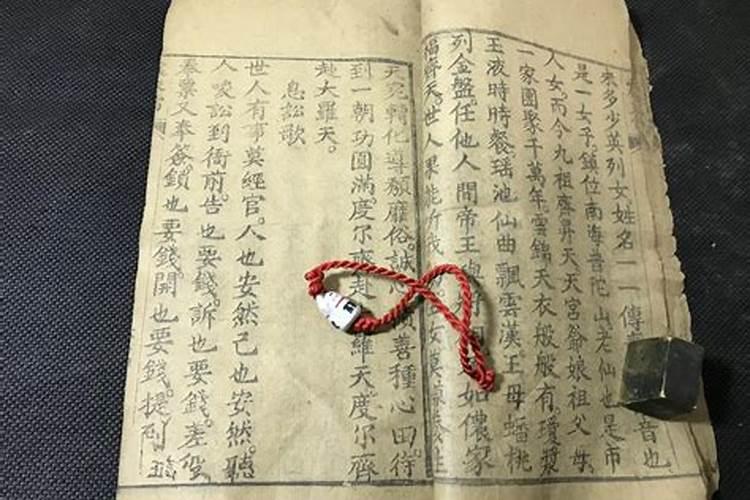 來多少英列女姓名一一傳
音也
是一女乎鎮位南海普陀山老仙也是市
人女而今九祖齊昇天天宮爺娘祖父母
一家團聚千萬年雲錦天衣般般有瓊漿
玉液時時餐瑤池仙曲飄雲漢王母蟠桃
列金盤任他人間帝王
如儂家
福齊天世人果能
女莫
天兒轉化導頹靡俗誠
善種心田待
到一朝功圓滿度尔齊赴
羅天度尔齊
赴大羅天。
息訟歌
世人有事莫經官人也安然己也安然聽
人唆訟到衙前告也要錢訴也要錢差役
奉票又奉簽鎖也要錢開也要錢提到